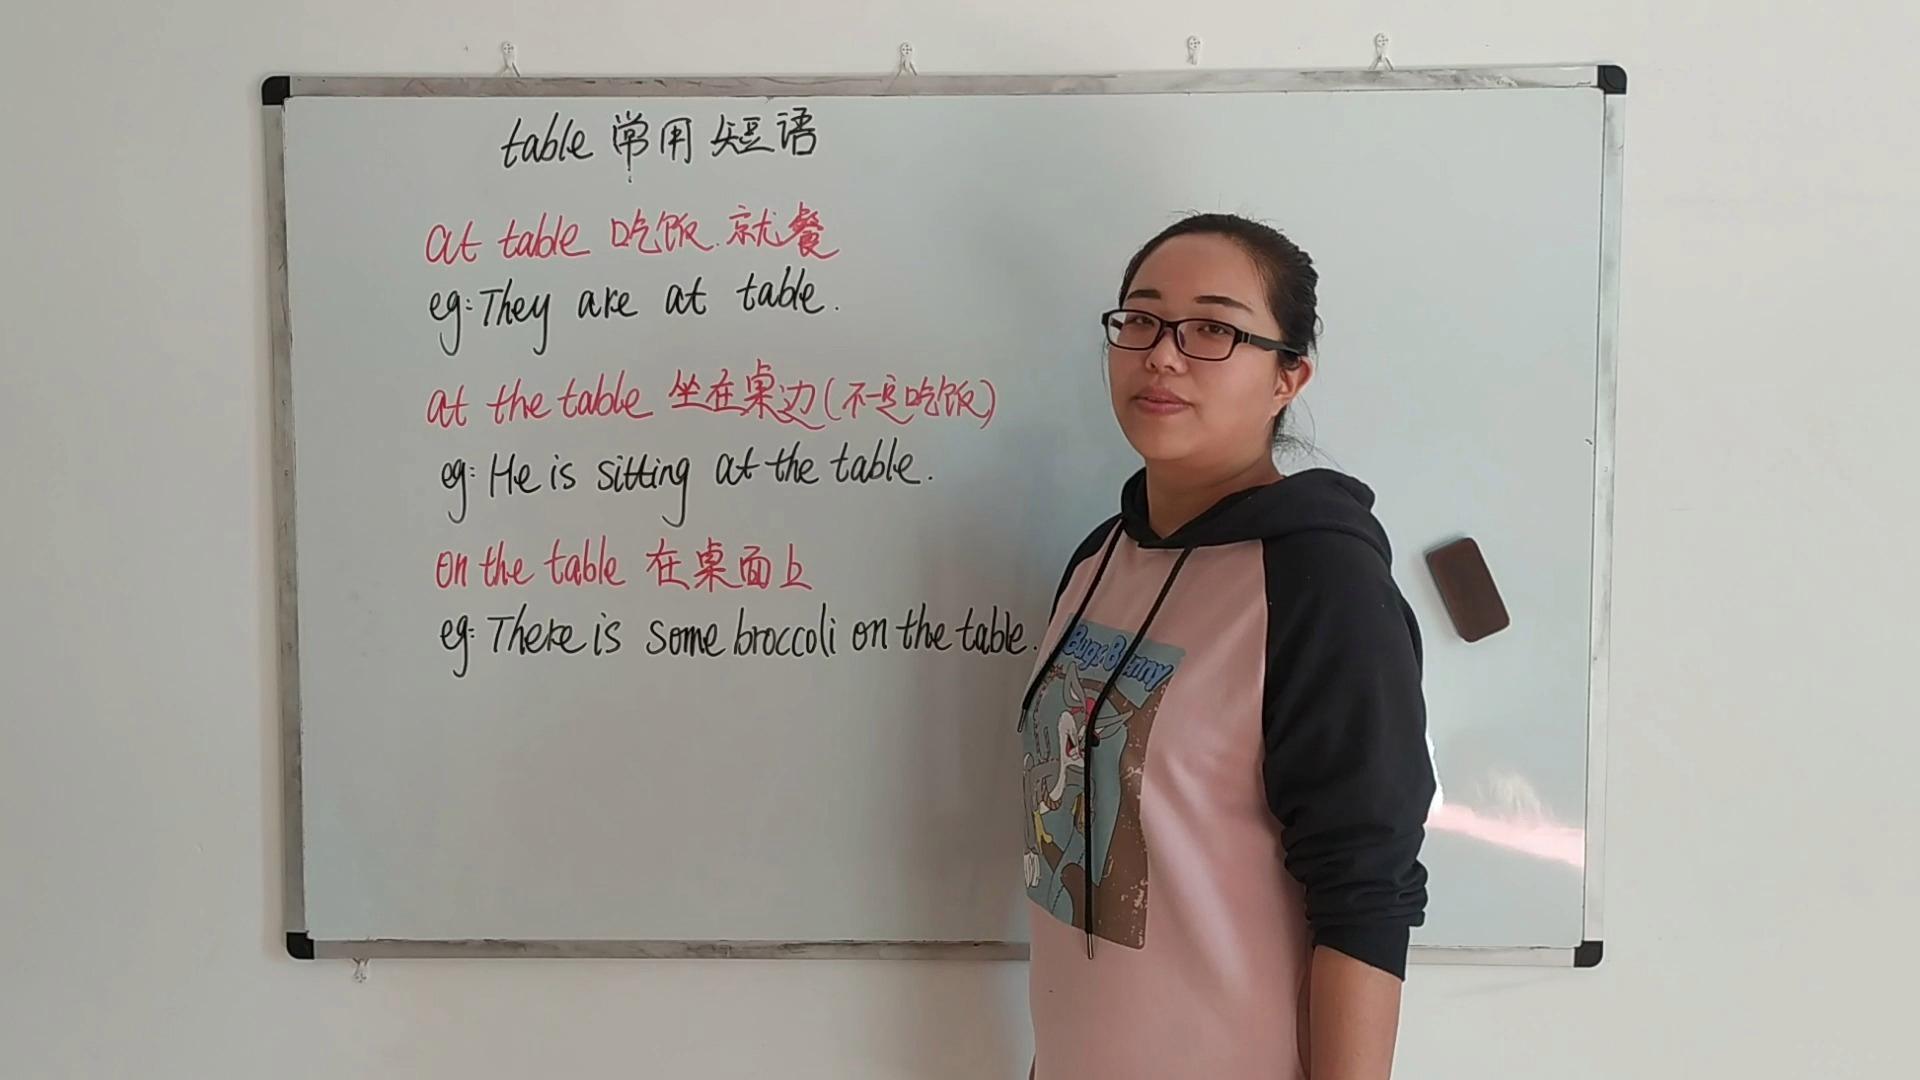 table 常用短语
at table 吃饭.就餐
eg: They are at table.
at the table 坐在桌边(不一定吃饭)
eg: He is sitting at the table.
on the table 在桌面上
eg: There is some broccoli on the table.
Bugs Bunny